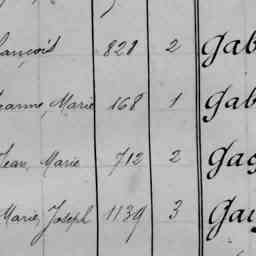 ançois 828 2 Gab
eanne, Marie 168 1 Gab
Jean, Marie 712 2 Gag
Marie, Joseph 1139 3 Gag